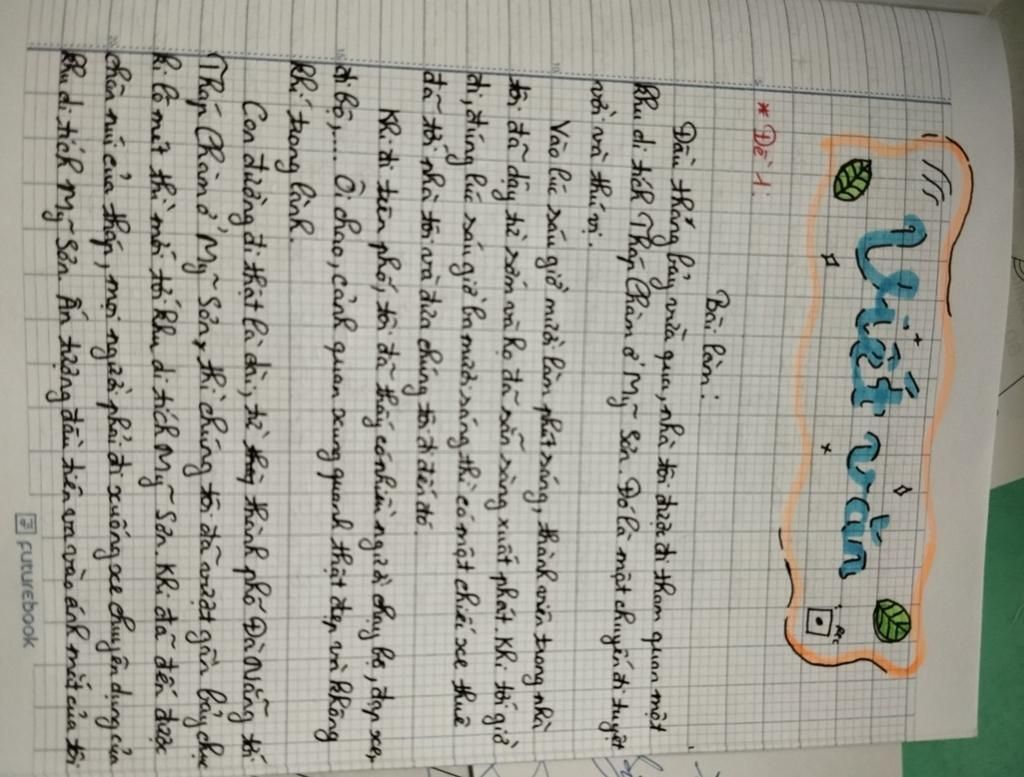 Viết văn
* Đề 1.
Bài làm:
Đầu tháng bảy vừa qua, nhà tôi được đi tham quan một
khu di tích Tháp Chàm ở Mỹ Sơn. Đó là một chuyến đi tuyệt
vời và thú vị.
Vào lúc sáu giờ mười lăm phút sáng, thành viên trong nhà
tôi đã dậy từ sớm và họ đã sẵn sàng xuất phát. Khi tới giờ
đi, đúng lúc sáu giờ ba mươi sáng thì có một chiếc xe thuê
đã tới nhà tôi và đưa chúng tôi đi đến đó.
Khi đi trên phố, tôi đã thấy có nhiều người chạy bộ, đạp xe,
đi bộ,.... Ôi chao, cảnh quan xung quanh thật đẹp và không
khí trong lành.
Con đường đi thật là dài, từ thành phố Đà Nẵng tới
Tháp Chàm ở Mỹ Sơn, thì chúng tôi đã vượt gần bảy chục
ki lô mét thì mới tới khu di tích Mỹ Sơn. Khi đã đến được
chân núi của tháp, mọi người phải đi xuống xe chuyên dụng của
khu di tích Mỹ Sơn. Ấn tượng đầu tiên va vào ánh mắt của tôi
futurebook